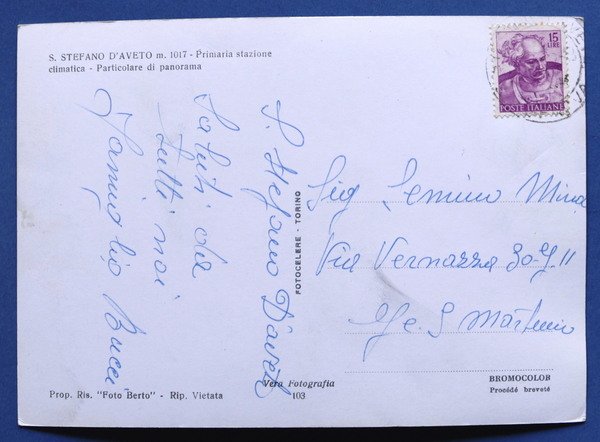 S. STEFANO D'AVETO m. 1017 - Primaria stazione
climatica - Particolare di panorama
15
LIRE
POSTE ITALIANE
S. Stefano D'aveto
Saluti da
tutti noi
Famiglia Bucci
FOTOCELERE - TORINO
Sig Semino
Via Vernazza
Ge S Martino
Vera Fotografia
103
BROMOCOLOR
Procédé breveté
Prop. Ris. "Foto Berto" - Rip. Vietata